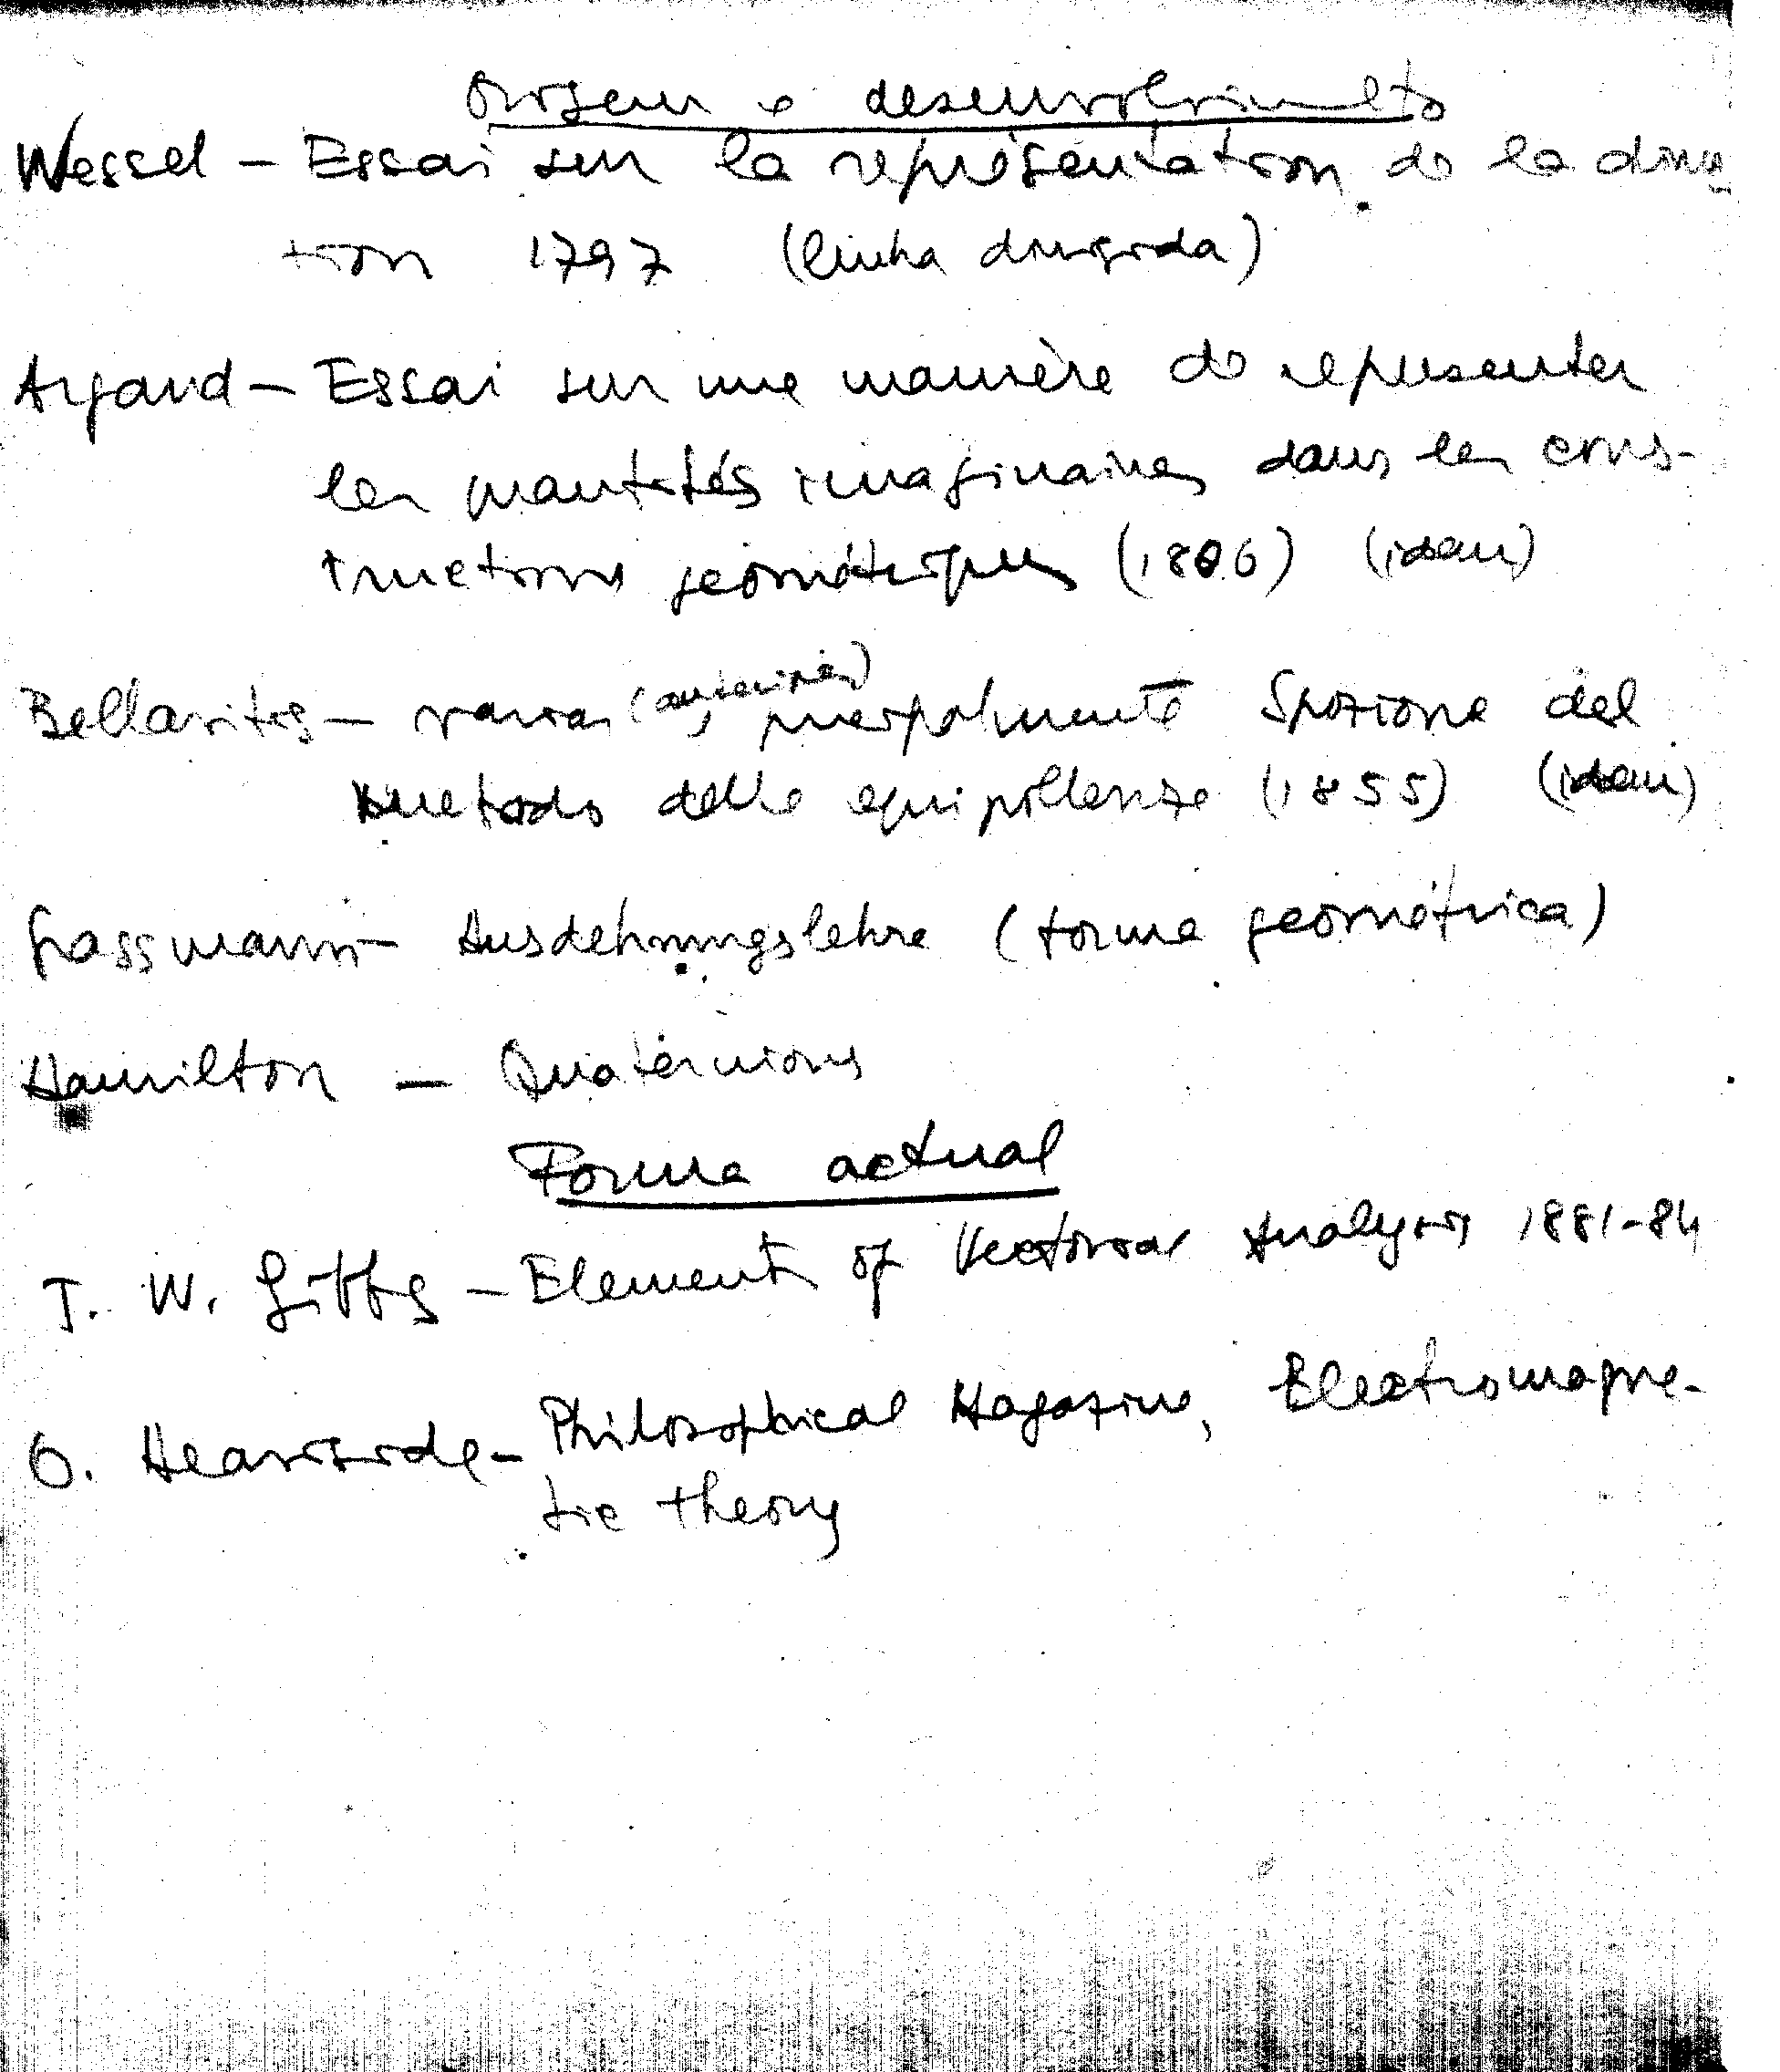 Origem e desenvolvimento
Wessel – Essai sur la représentation de la direc
tion 1797 (linha dirigida)
Argand – Essai sur une manière de representer
les quantités imaginaires dans les cons-
tructions géométriques (1806) (idem)
Bellavitis – varias (anteriores), principalmente Sposizione del
metodo delle equipollenze (1855) (idem)
Grassmann – Ausdehnungslehre (forma geométrica)
Hamilton – Quaternions
Forma actual
J. W. Gibbs – Elements of Vectorial Analysis 1881-84
O. Heaviside – Philosophical Magazine, Electromagne-
tic theory